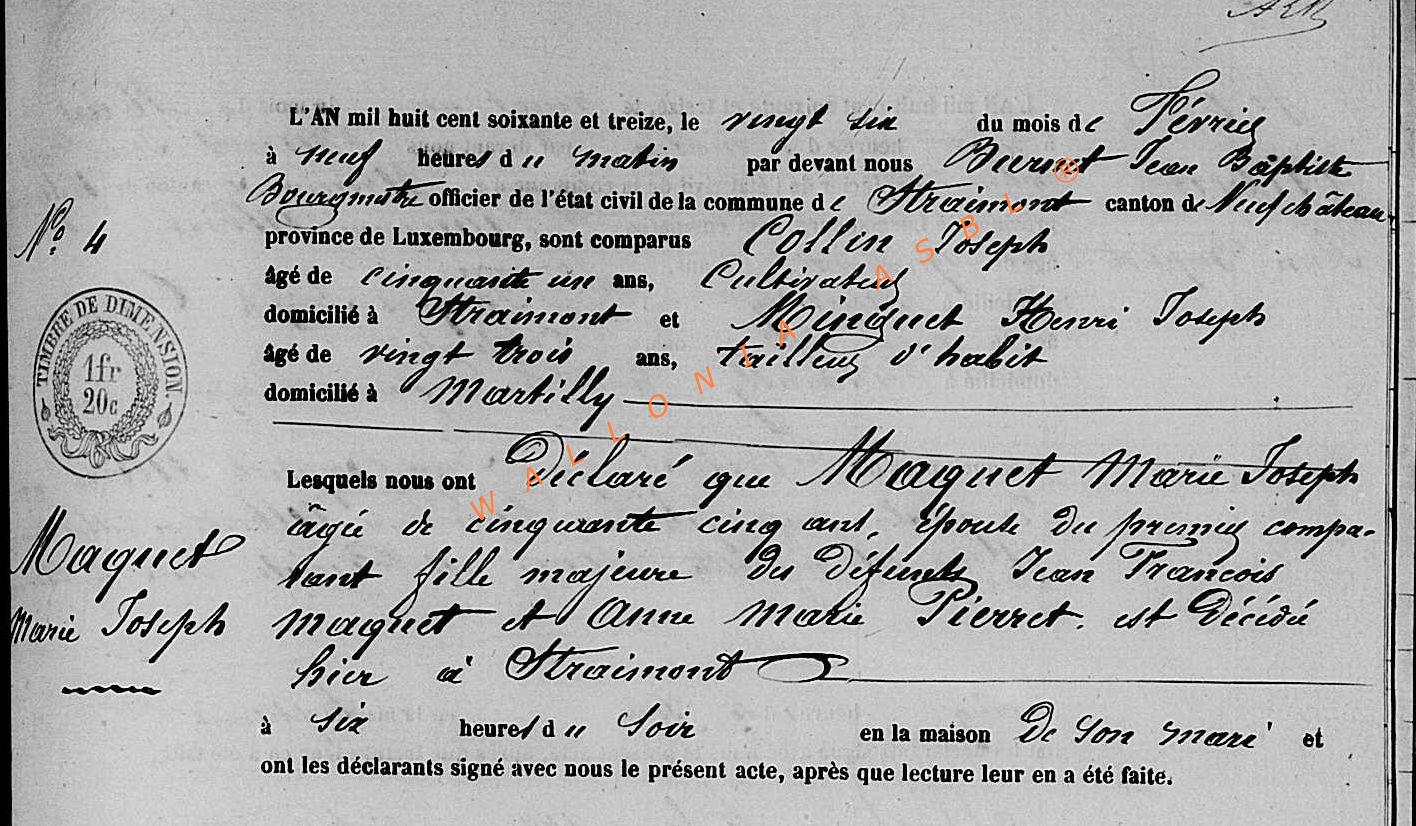 L'AN mil huit cent soixante et treize, le vingt six du mois de Février
à neuf heures du matin par devant nous Burnet Jean Bâptiste
Bourgmestre officier de l'état civil de la commune de Straimont canton de Neufchâteau
N° 4
province de Luxembourg, sont comparus Collin Joseph
âgé de cinquante un ans, Cultivateur
domicilié à Straimont et Minguet Henri Joseph
âgé de vingt trois ans, tailleur d'habit
domicilié à Martilly
TIMBRE DE DIMENSION.
1fr
20c
Lesquels nous ont Déclaré que Maquet Marie Joseph
âgée de cinquante cinq ans, épouse du premier compa-
rant fille majeure des défunts Jean Francois
maquet et Anne Marie Pierret. est Décédée
hier à Straimont
Maquet
Marie Joseph
à six heures du soir en la maison De son mari et
ont les déclarants signé avec nous le présent acte, après que lecture leur en a été faite.
WALLONIA ASBL ®